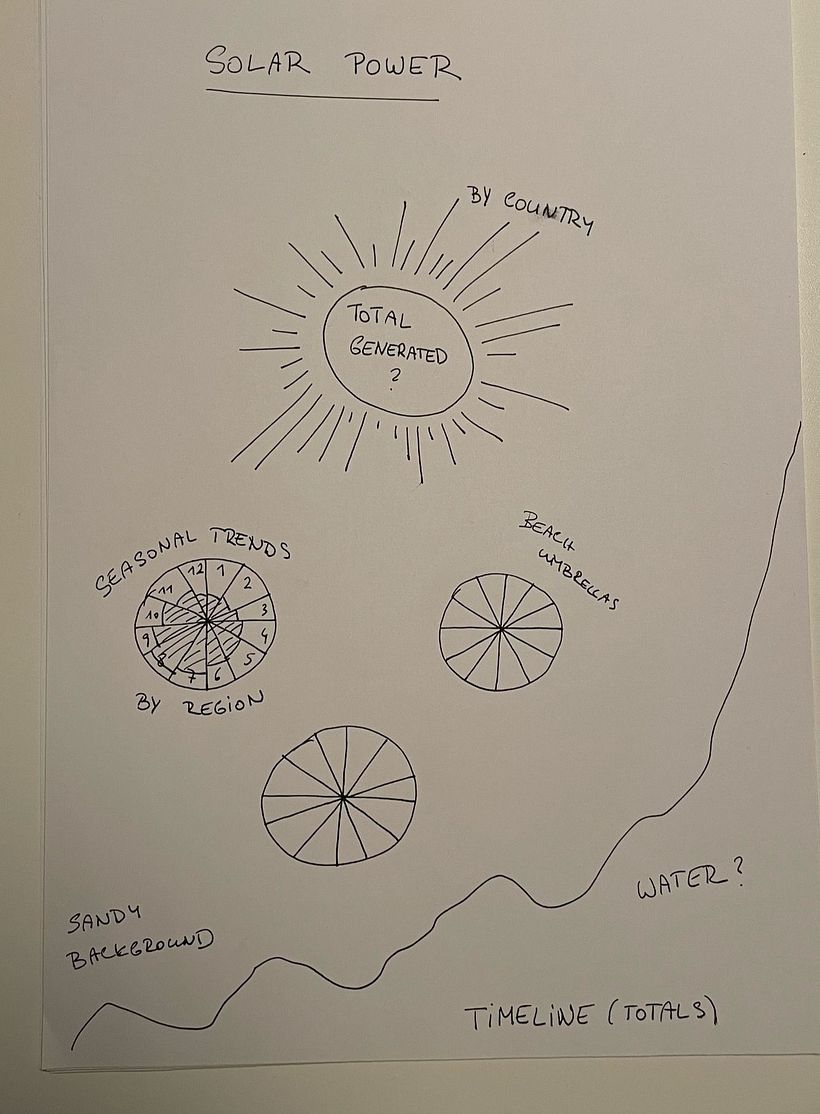 SOLAR POWER
BY COUNTRY
TOTAL
GENERATED
?
SEASONAL TRENDS
12 1 2 3 4 5 6 7 8 9 10 11
BY REGION
BEACH
UMBRELLAS
SANDY
BACKGROUND
WATER?
TIMELINE (TOTALS)